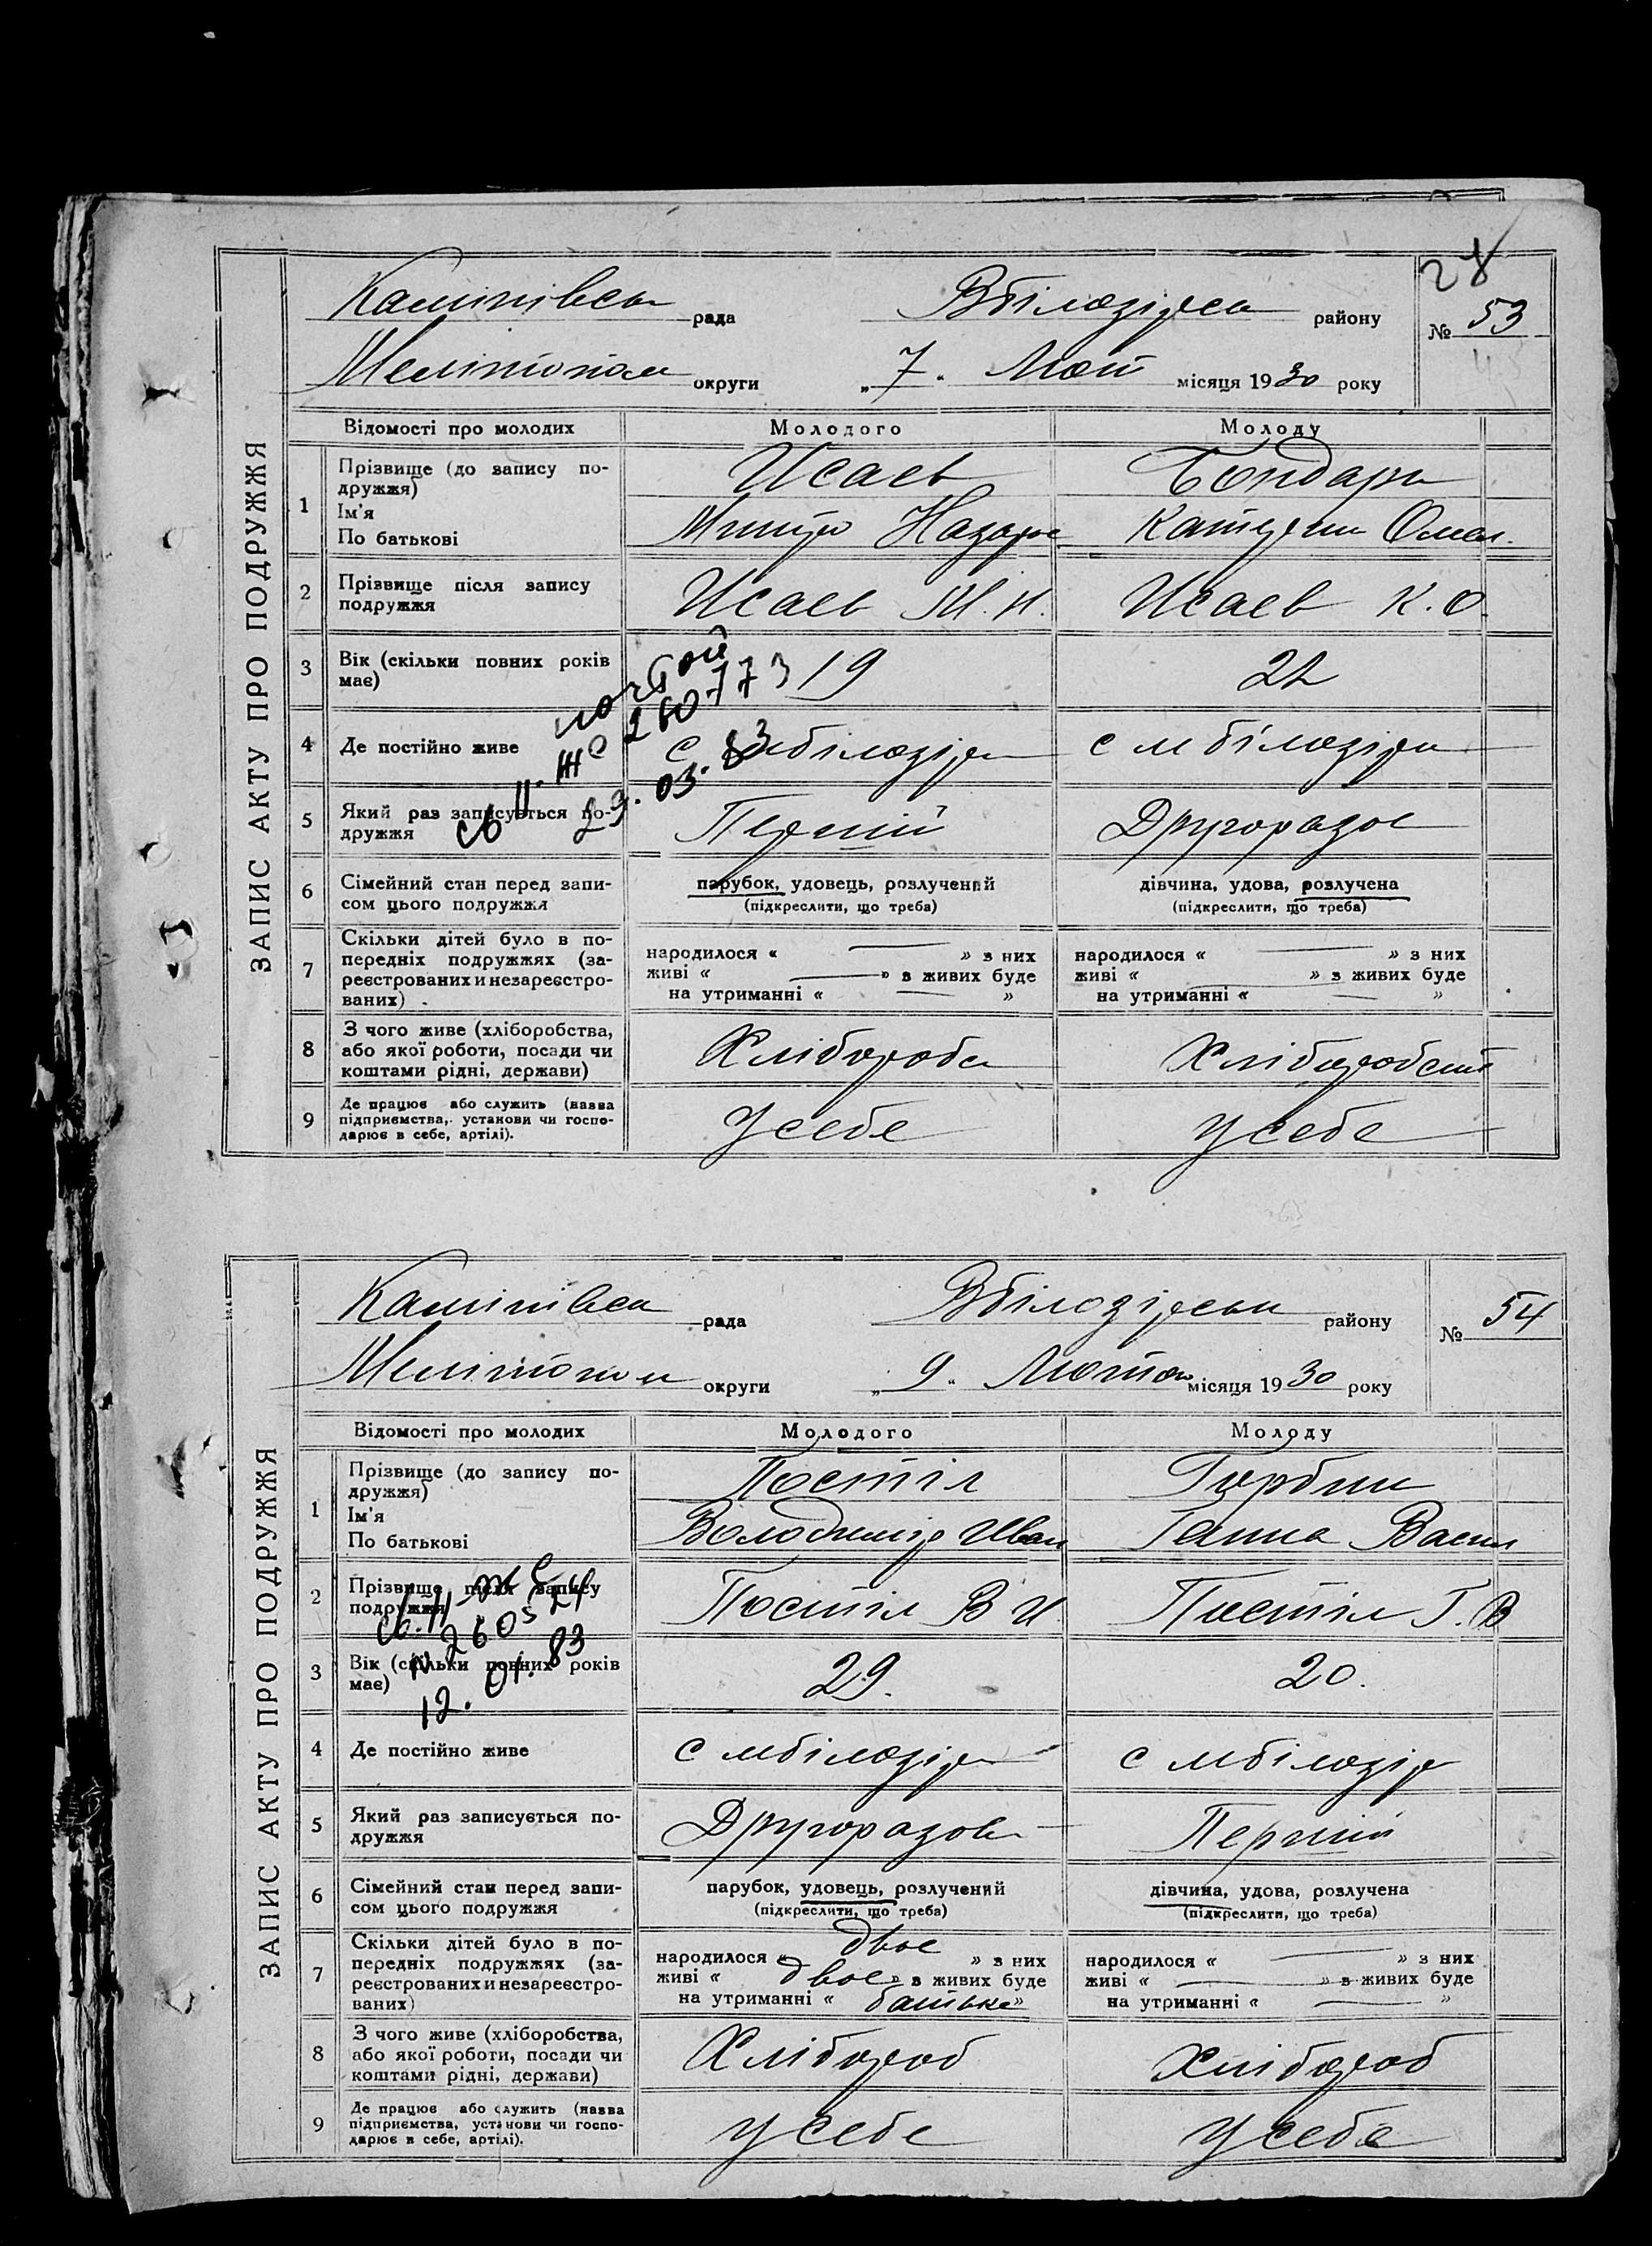 28
рада району № 53
округи „7“ Лют місяця 1930 року
ЗАПИС АКТУ ПРО ПОДРУЖЖЯ
Відомості про молодих Молодого Молоду
1 Прізвище (до запису по-
дружжя) Исаев Бондарь
Ім'я
По батькові Назаров Катерина Омел.
2 Прізвище після запису
подружжя Исаев М. Н. Исаев К. О.
3 Вік (скільки повних років
має) 19
почтой
260773
29.03.83
4 Де постійно живе с мбілозірк с м білозірк
5 Який раз записується по-
дружжя Перший Другоразов
6 Сімейний стан перед запи-
сом цього подружжя парубок, удовець, розлучений дівчина, удова, розлучена
(підкреслити, що треба) (підкреслити, що треба)
7 Скільки дітей було в по-
передніх подружжях (за-
реєстрованих и незареєстро-
ваних)
народилося « — » з них народилося « — » з них
живі « — » з живих буде живі « » з живих буде
на утриманні « — » на утриманні « — »
8 З чого живе (хліборобства,
або якої роботи, посади чи
коштами рідні, держави) Хлібороб
9 Де працює або служить (назва
підприємства, установи чи госпо-
дарює в себе, артілі). У себе У себе
рада району № 54
округи „9“ Лютого місяця 1930 року
ЗАПИС АКТУ ПРО ПОДРУЖЖЯ
Відомості про молодих Молодого Молоду
1 Прізвище (до запису по-
дружжя) Постіл
Ім'я
По батькові Володимір Иван Ганна Васил
2 Прізвище після запису
подружжя Постіл В И. Постіл Г. В
260524
12.01.83
3 Вік (скільки повних років
має) 29. 20.
4 Де постійно живе с мбілозірк с мбілозір
5 Який раз записується по-
дружжя Другоразов Перший
6 Сімейний стан перед запи-
сом цього подружжя парубок, удовець, розлучений дівчина, удова, розлучена
(підкреслити, що треба) (підкреслити, що треба)
7 Скільки дітей було в по-
передніх подружжях (за-
реєстрованих и незареєстро-
ваних)
народилося « двое » з них народилося « — » з них
живі « двое » з живих буде живі « — » з живих буде
на утриманні « батьке » на утриманні « — »
8 З чого живе (хліборобства,
або якої роботи, посади чи
коштами рідні, держави) Хлібороб Хлібороб
9 Де працює або служить (назва
підприємства, установи чи госпо-
дарює в себе, артілі). У себе У себе